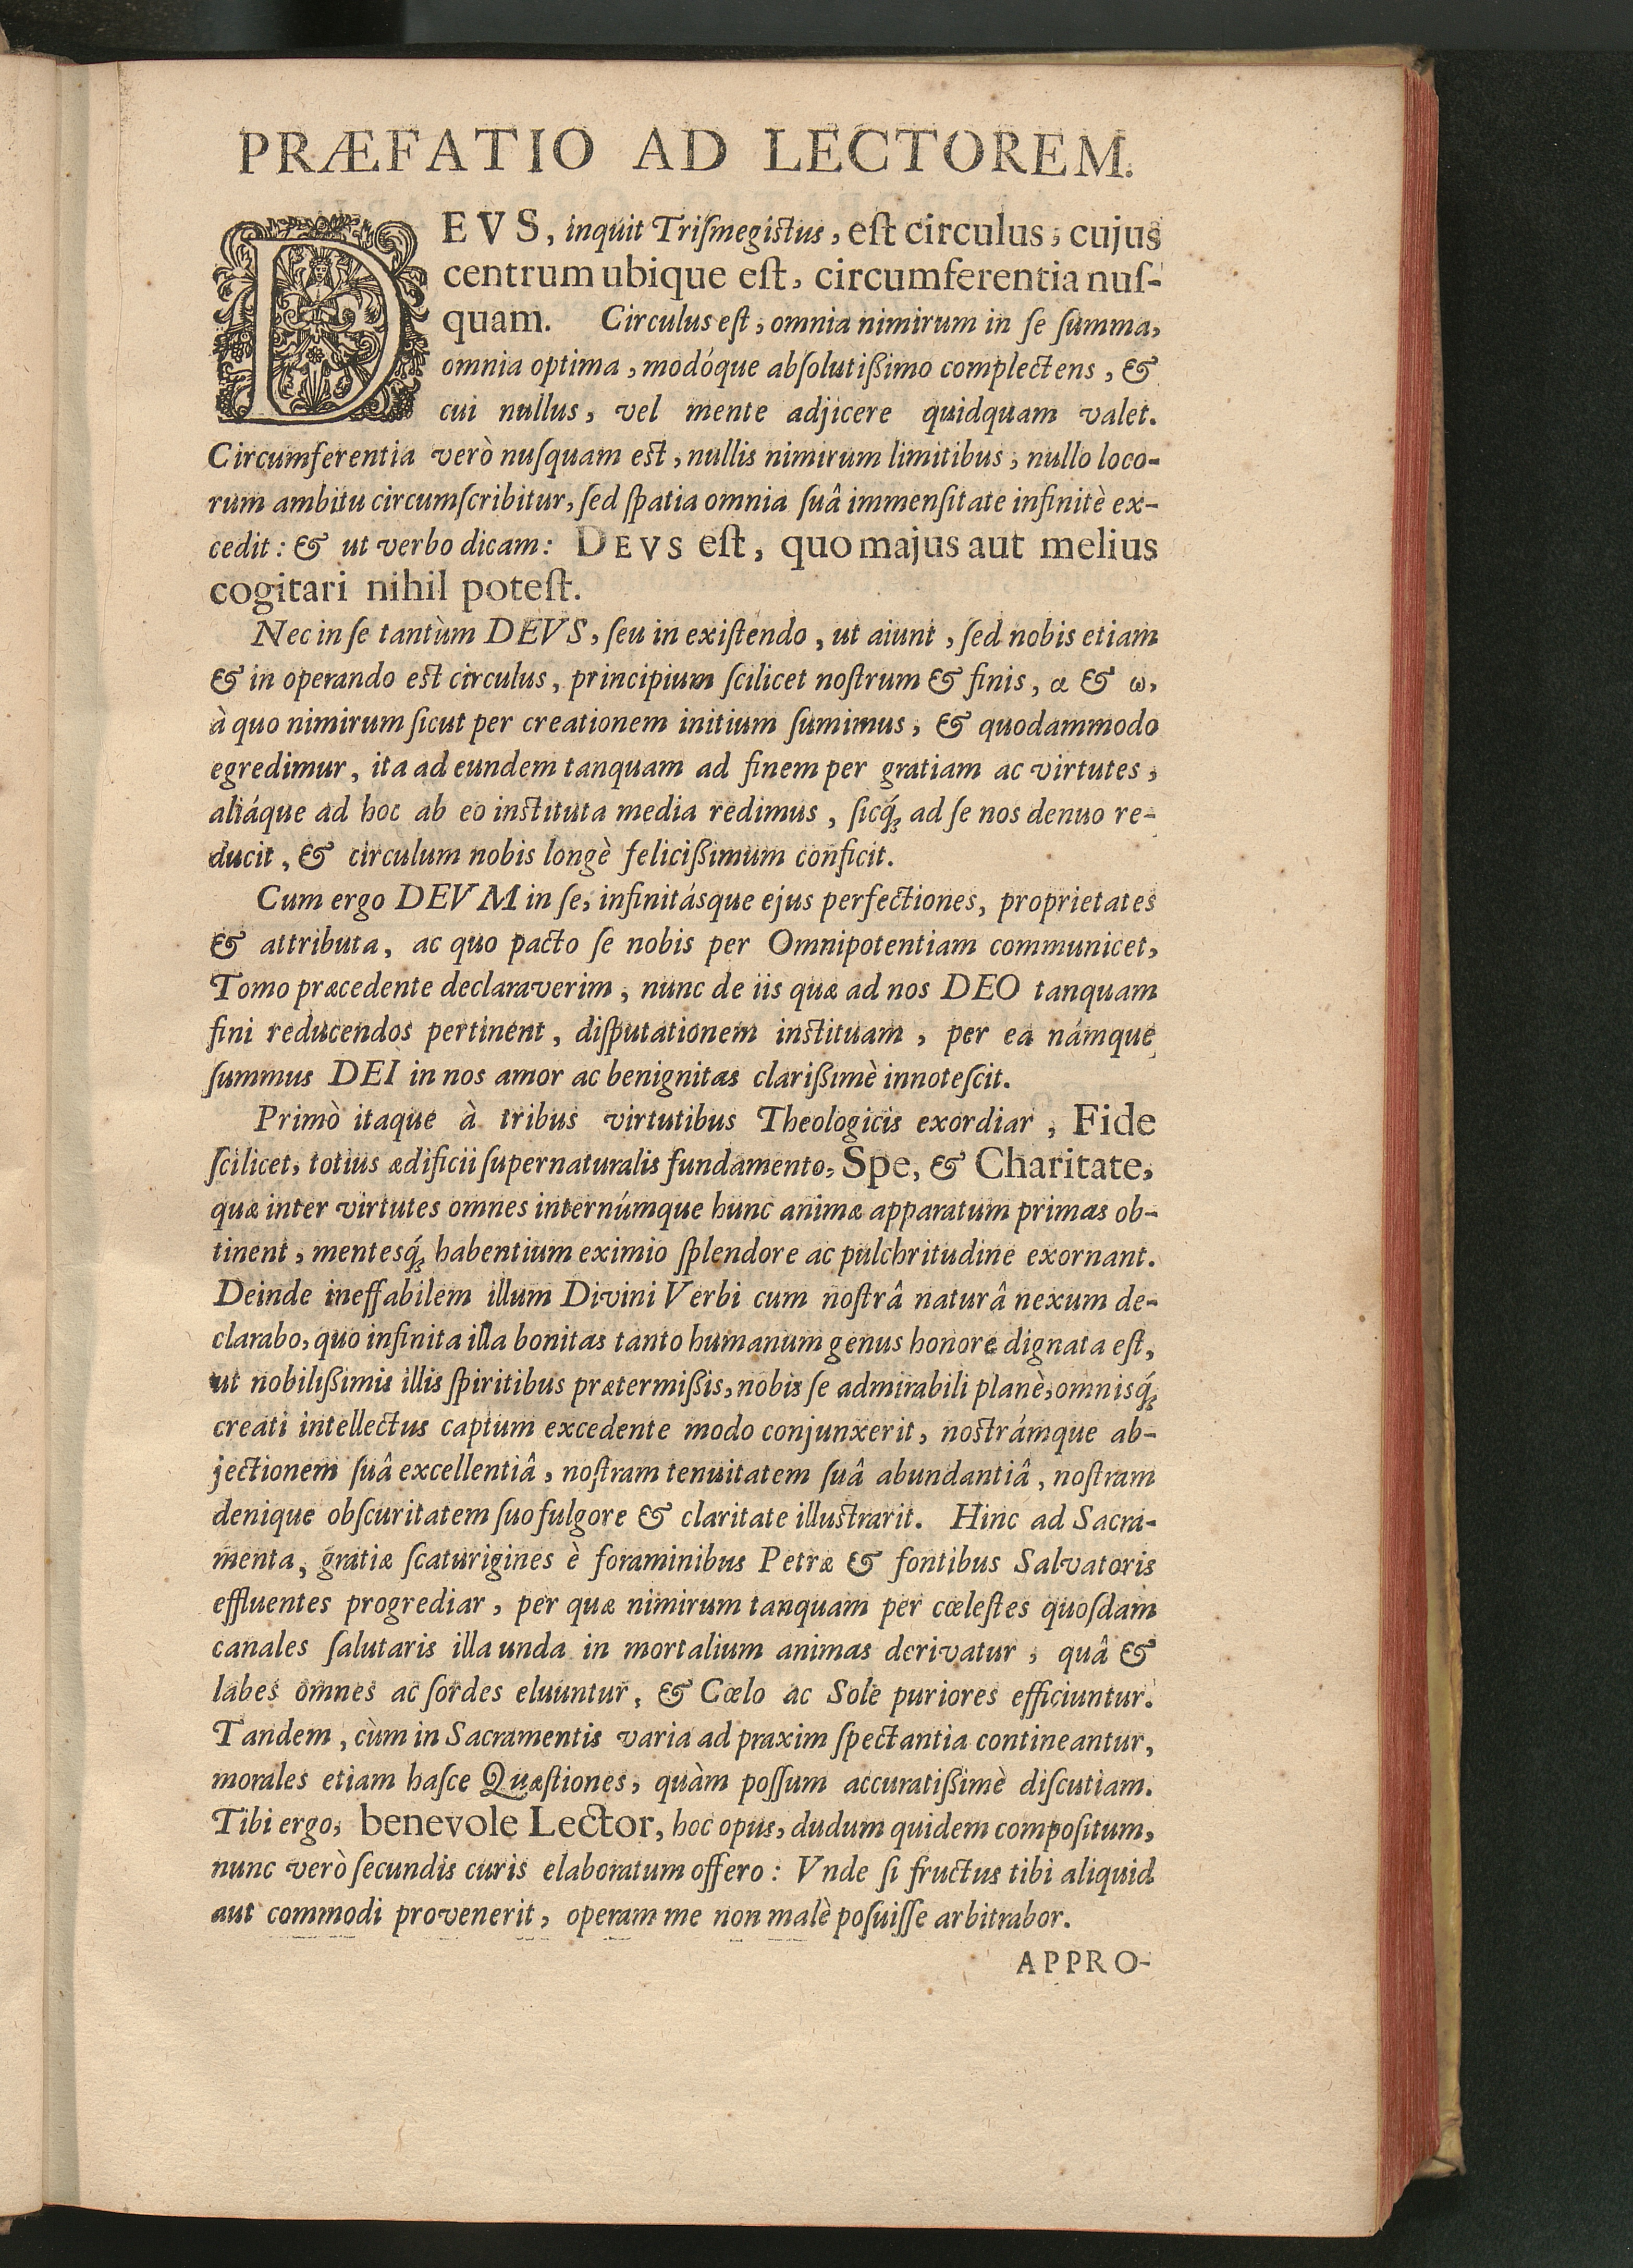 PRÆFATIO AD LECTOREM.
DEVS, inquit Triſmegistus, eſt circulus, cujus
centrum ubique eſt, circumferentia nuſ-
quam. Circulus eſt, omnia nimirum in ſe ſumma,
omnia optima, modóque abſolutißimo complectens, &
cui nullus, vel mente adjicere quidquam valet.
Circumferentia verò nuſquam est, nullis nimirum limitibus, nullo loco-
rum ambitu circumſcribitur, ſed ſpatia omnia ſuâ immenſitate infinitè ex-
cedit: & ut verbo dicam: DEVS eſt, quo majus aut melius
cogitari nihil poteſt.
Nec in ſe tantùm DEVS, ſeu in exiſtendo, ut aiunt, ſed nobis etiam
& in operando est circulus, principium ſcilicet noſtrum & finis, α & ω,
à quo nimirum ſicut per creationem initium ſumimus, & quodammodo
egredimur, ita ad eundem tanquam ad finem per gratiam ac virtutes,
aliáque ad hoc ab eo instituta media redimus, ſicq́; ad ſe nos denuo re-
ducit, & circulum nobis longè felicißimum conficit.
Cum ergo DEVM in ſe, infinitásque ejus perfectiones, proprietates
& attributa, ac quo pacto ſe nobis per Omnipotentiam communicet,
Tomo præcedente declaraverim, nunc de iis quæ ad nos DEO tanquam
fini reducendos pertinent, diſputationem instituam, per ea námque
ſummus DEI in nos amor ac benignitas clarißimè innoteſcit.
Primò itaque à tribus virtutibus Theologicis exordiar, Fide
ſcilicet, totius ædificii ſupernaturalis fundamento, Spe, & Charitate,
quæ inter virtutes omnes internúmque hunc animæ apparatum primas ob-
tinent, mentesq́; habentium eximio ſplendore ac pulchritudine exornant.
Deinde ineffabilem illum Divini Verbi cum noſtrâ naturâ nexum de-
clarabo, quo infinita illa bonitas tanto humanum genus honore dignata eſt,
ut nobilißimis illis ſpiritibus prætermißis, nobis ſe admirabili planè, omnisq́;
creati intellectus captum excedente modo conjunxerit, nostrámque ab-
jectionem ſuâ excellentiâ, noſtram tenuitatem ſuâ abundantiâ, noſtram
denique obſcuritatem ſuo fulgore & claritate illustrarit. Hinc ad Sacra-
menta, gratiæ ſcaturigines è foraminibus Petræ & fontibus Salvatoris
effluentes progrediar, per quæ nimirum tanquam per cœleſtes quoſdam
canales ſalutaris illa unda in mortalium animas derivatur, quâ &
labes omnes ac ſordes eluuntur, & Cœlo ac Sole puriores efficiuntur.
Tandem, cùm in Sacramentis varia ad praxim ſpectantia contineantur,
morales etiam haſce Quæſtiones, quàm poſſum accuratißimè diſcutiam.
Tibi ergo, benevole Lector, hoc opus, dudum quidem compoſitum,
nunc verò ſecundis curis elaboratum offero: Vnde ſi fructus tibi aliquid
aut commodi provenerit, operam me non malè poſuiſſe arbitrabor.
APPRO-